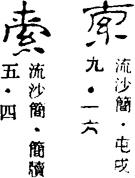 流沙簡·屯戍
九·一六
索
流沙簡·簡牘
五·四